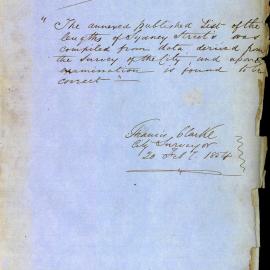 "The annexed published List of the
lengths of Sydney Streets was
compiled from data derived from
the Survey of the City, and upon
examination is found to be
correct"
Francis Clarke
City Surveyor
20 Feb 1854